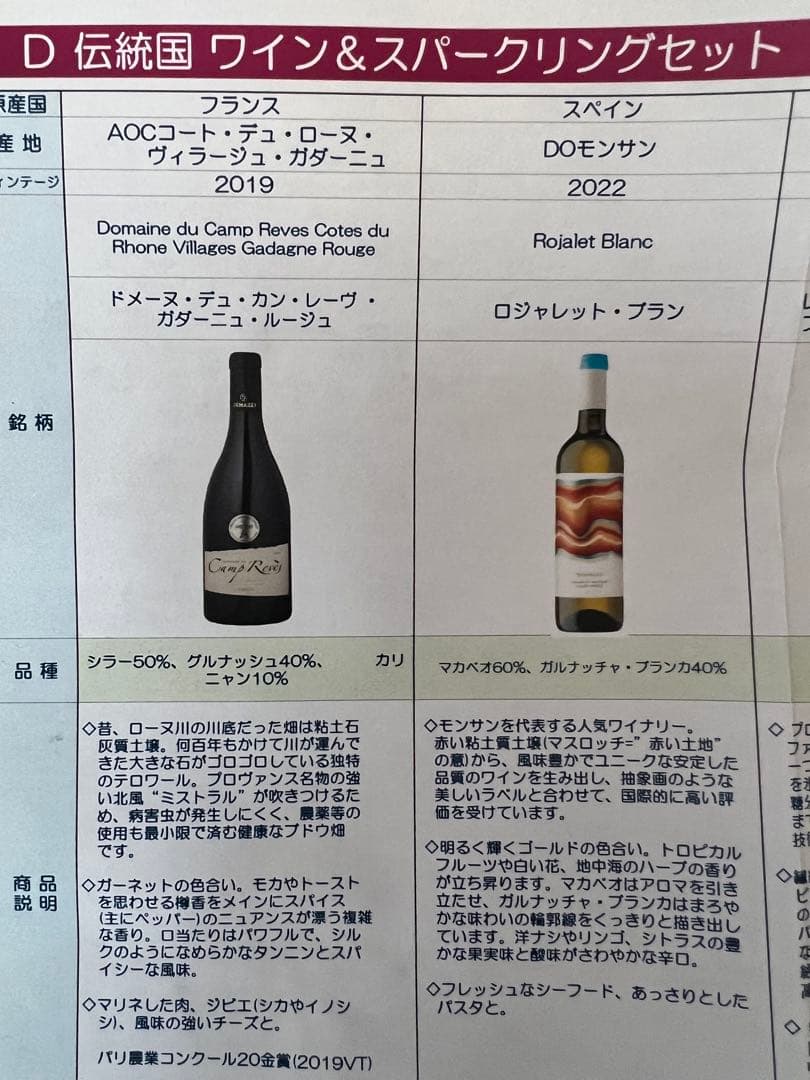 D 伝統国 ワイン＆スパークリングセット
産国
フランス
スペイン
産 地
AOCコート・デュ・ローヌ・
ヴィラージュ・ガダーニュ
DOモンサン
ィンテージ
2019
2022
Domaine du Camp Reves Cotes du
Rhone Villages Gadagne Rouge
Rojalet Blanc
ドメーヌ・デュ・カン・レーヴ ・
ガダーニュ・ルージュ
ロジャレット・ブラン
銘 柄
Camp Revès
品 種
シラー50%、グルナッシュ40%、 カリ
ニャン10%
マカベオ60%、ガルナッチャ・ブランカ40%
商 品
説 明
◇昔、ローヌ川の川底だった畑は粘土石
灰質土壌。何百年もかけて川が運んで
きた大きな石がゴロゴロしている独特
のテロワール。プロヴァンス名物の強
い北風“ミストラル”が吹きつけるた
め、病害虫が発生しにくく、農薬等の
使用も最小限で済む健康なブドウ畑
です。
◇ガーネットの色合い。モカやトースト
を思わせる樽香をメインにスパイス
(主にペッパー)のニュアンスが漂う複雑
な香り。口当たりはパワフルで、シル
クのようになめらかなタンニンとスパ
イシーな風味。
◇マリネした肉、ジビエ(シカやイノシ
シ)、風味の強いチーズと。
パリ農業コンクール20金賞(2019VT)
◇モンサンを代表する人気ワイナリー。
赤い粘土質土壌(マスロッチ=”赤い土地”
の意)から、風味豊かでユニークな安定した
品質のワインを生み出し、抽象画のような
美しいラベルと合わせて、国際的に高い評
価を受けています。
◇明るく輝くゴールドの色合い。トロピカル
フルーツや白い花、地中海のハーブの香り
が立ち昇ります。マカベオはアロマを引き
立たせ、ガルナッチャ・ブランカはまろや
かな味わいの輪郭線をくっきりと描き出し
ています。洋ナシやリンゴ、シトラスの豊
かな果実味と酸味がさわやかな辛口。
◇フレッシュなシーフード、あっさりとした
パスタと。